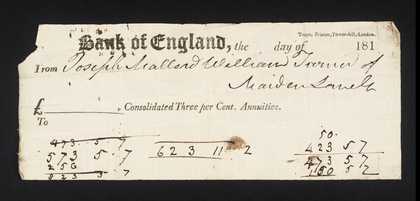 Teape, Printer, Tower-hill, London.
Bank of England, the day of 181
From Joseph Mallord William Turner of
Maiden Lane
£ Consolidated Three per Cent. Annuities.
To
50.
473 5 7 423 5 7
573 5 7 623 11 2 473 5 7
250 150 5 2
823 5 7